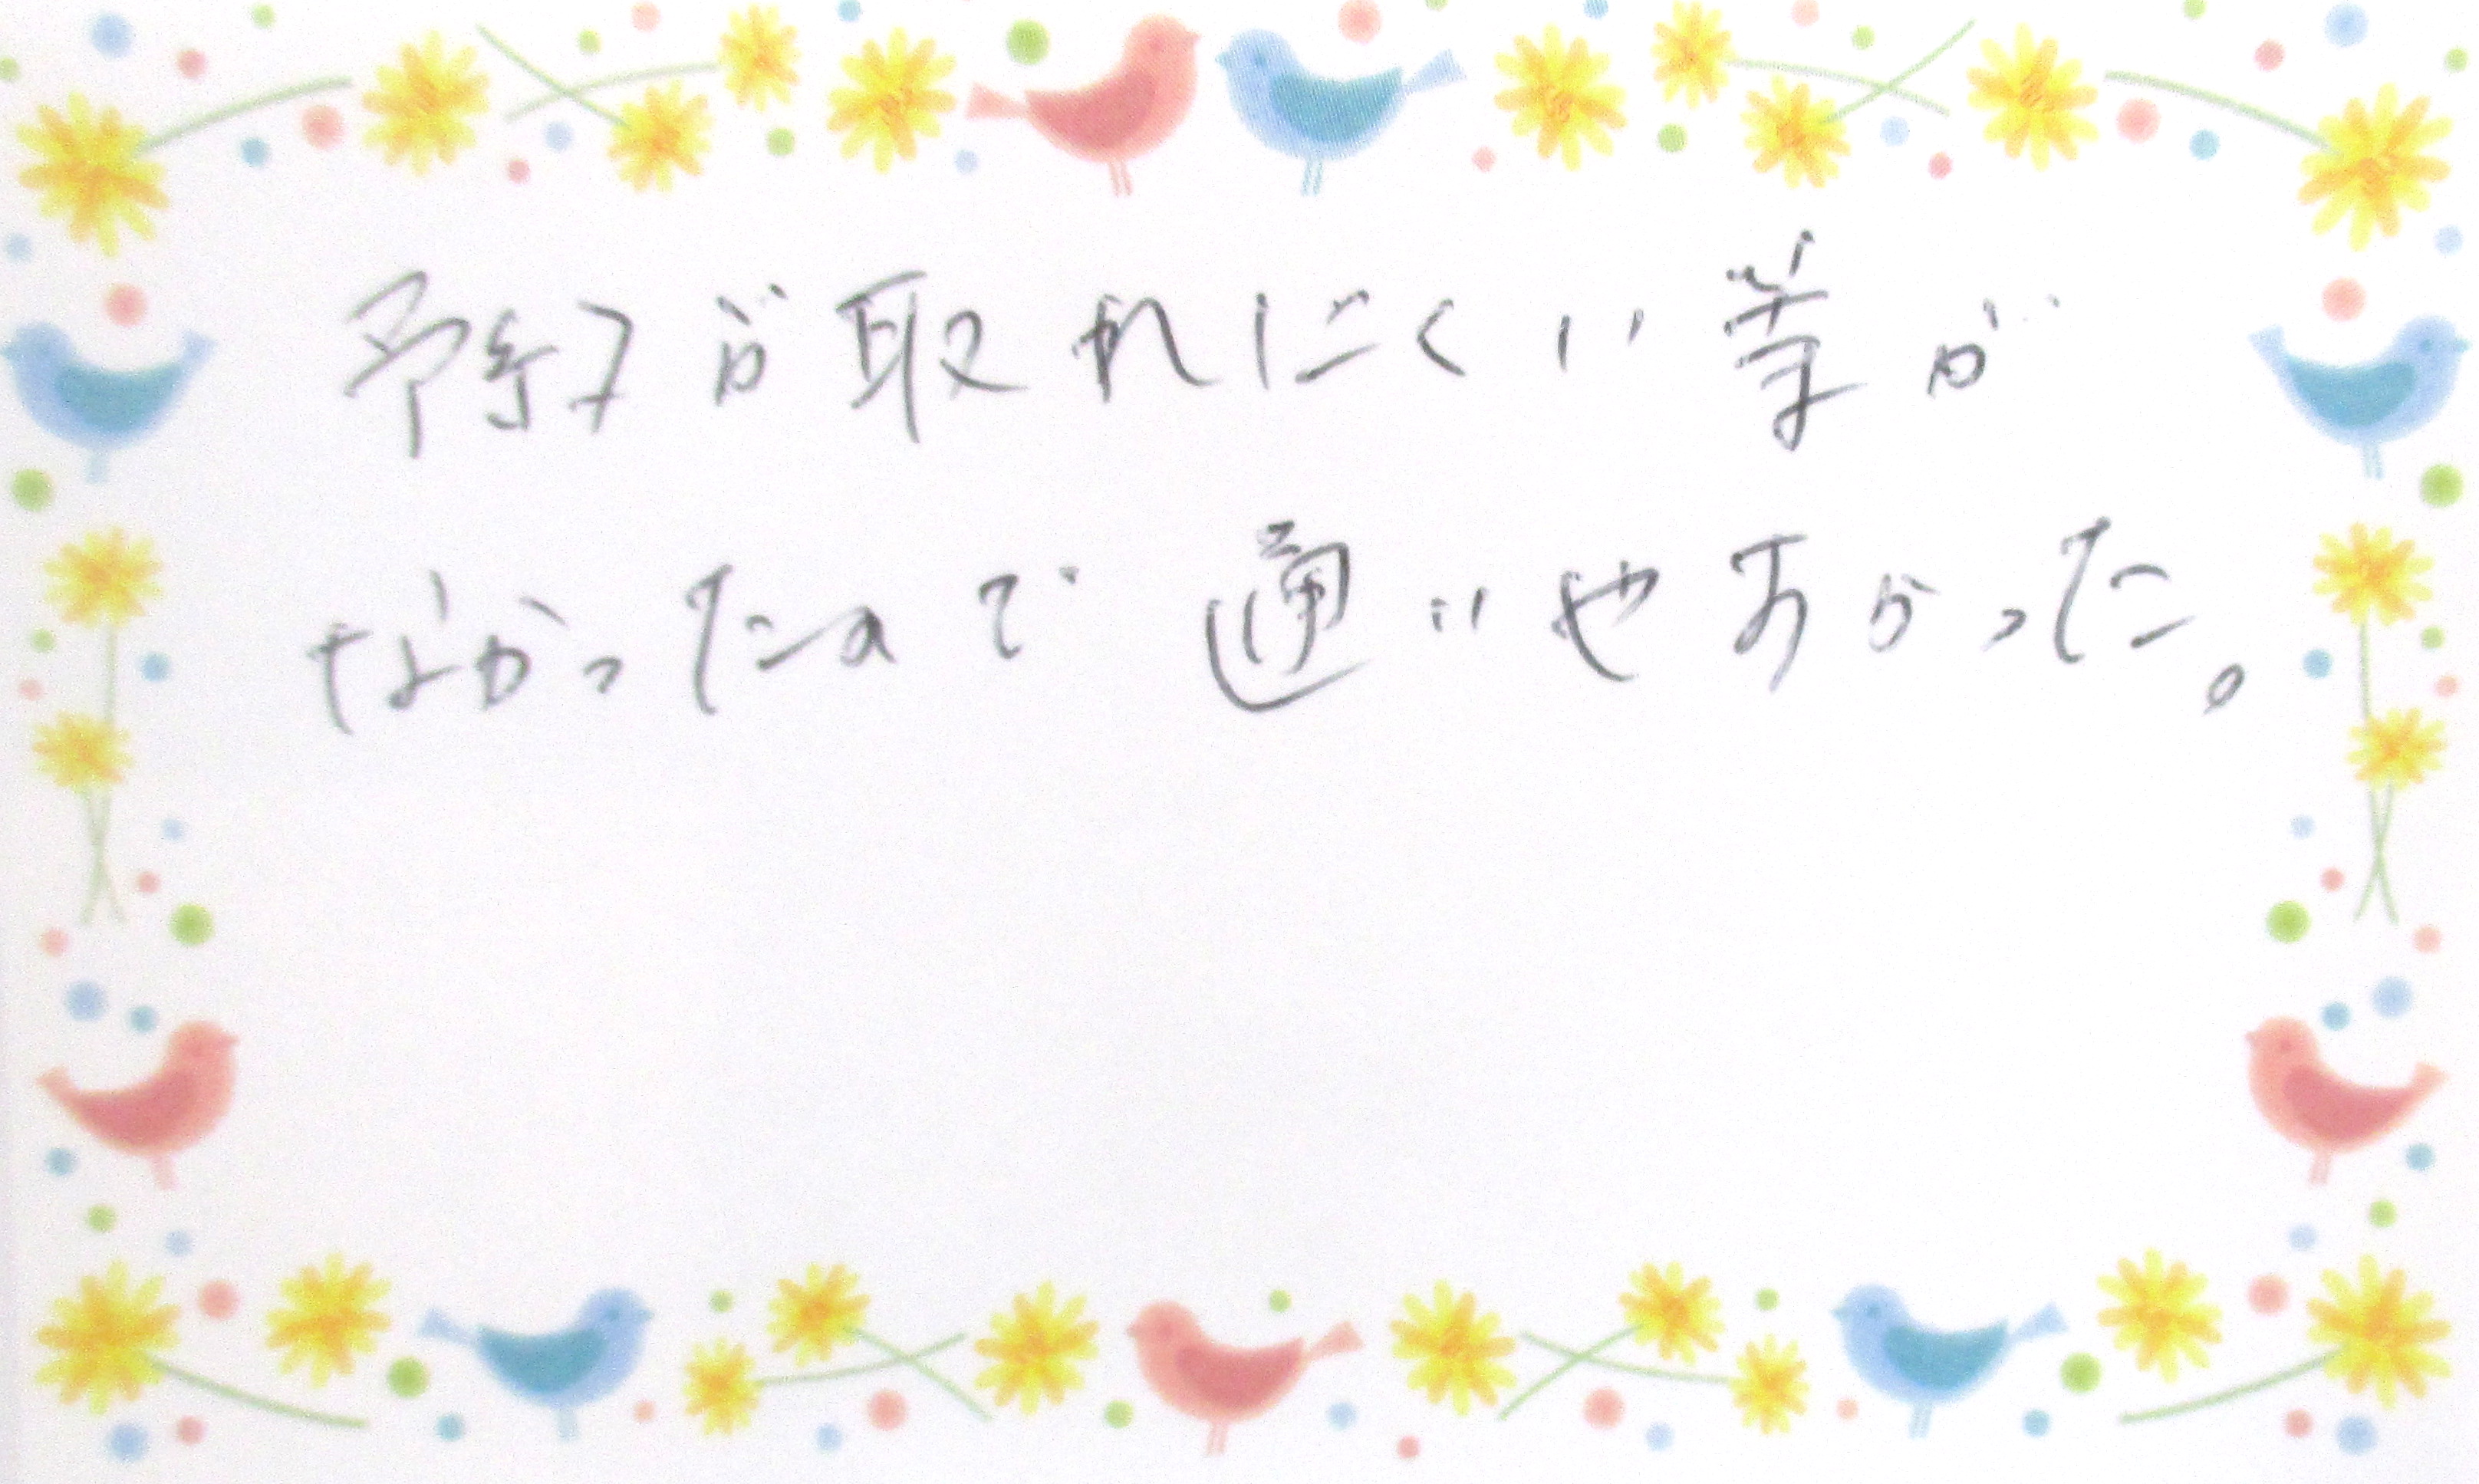 予約が取れにくい事が
なかったので通いやすかった。